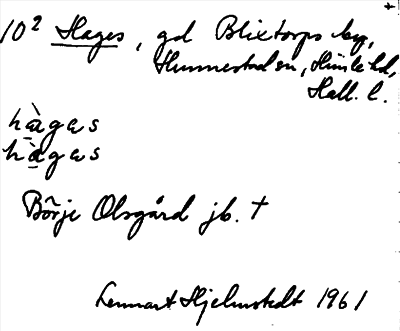 10² Hages, gd Blixtorps by,
Hunnestad sn, Himle hd,
Hall. l.
hàgas
hàgas
Börje Olsgård jb. †
Lennart Hjelmstedt 1961